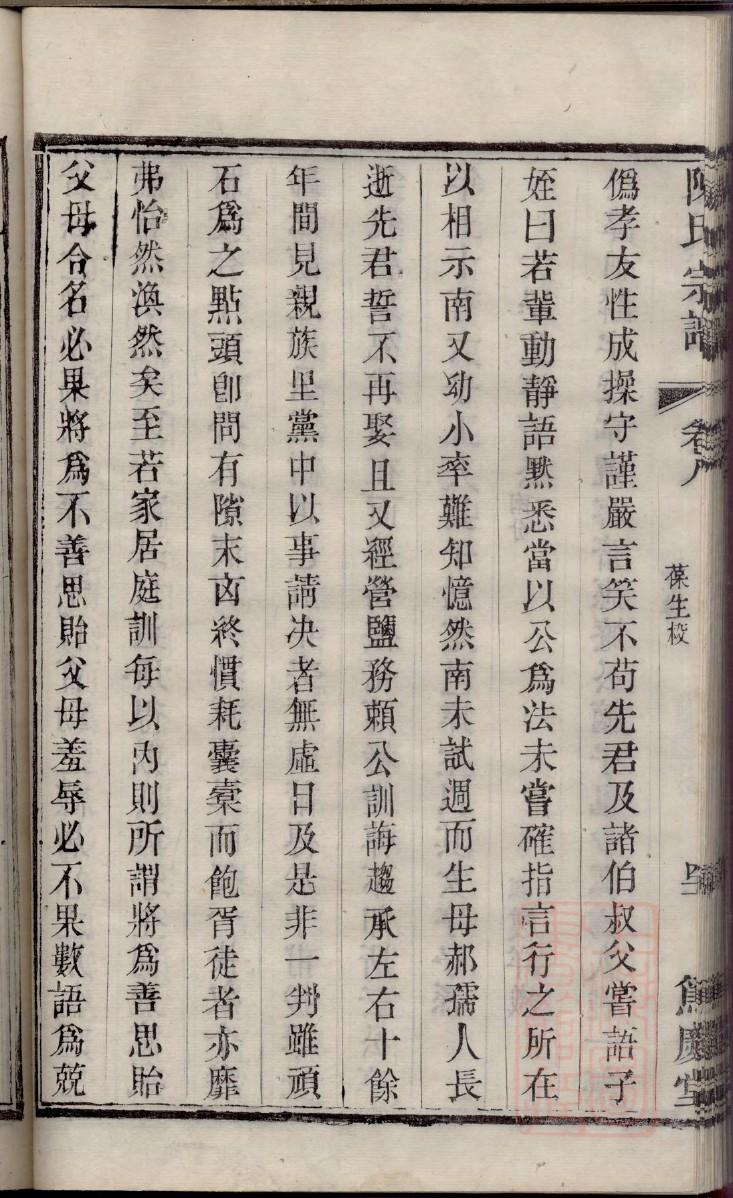 陳氏宗譜
卷八
葆生校
僞孝友性成操守謹嚴言笑不苟先君及諸伯叔父嘗語子
姪曰若輩動靜語黙悉當以公爲法未嘗確指言行之所在
以相示南又幼小率難知憶然南未試週而生母郝孺人長
逝先君誓不再娶且又經營鹽務頼公訓誨趨承左右十餘
年間見親族里黨中以事請决者無虛日及是非一判雖頑
石爲之點頭卽間有隙末凶終慣耗囊槖而飽胥徒者亦靡
弗怡然渙然矣至若家居庭訓每以內則所謂將爲善思貽
父母令名必果將爲不善思貽父母羞辱必不果數語爲兢